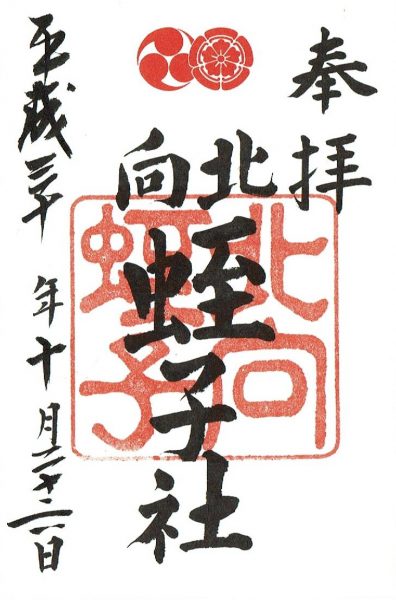 奉拝
北向
蛭子社
北向
蛭子
平成三十年十月二十二日